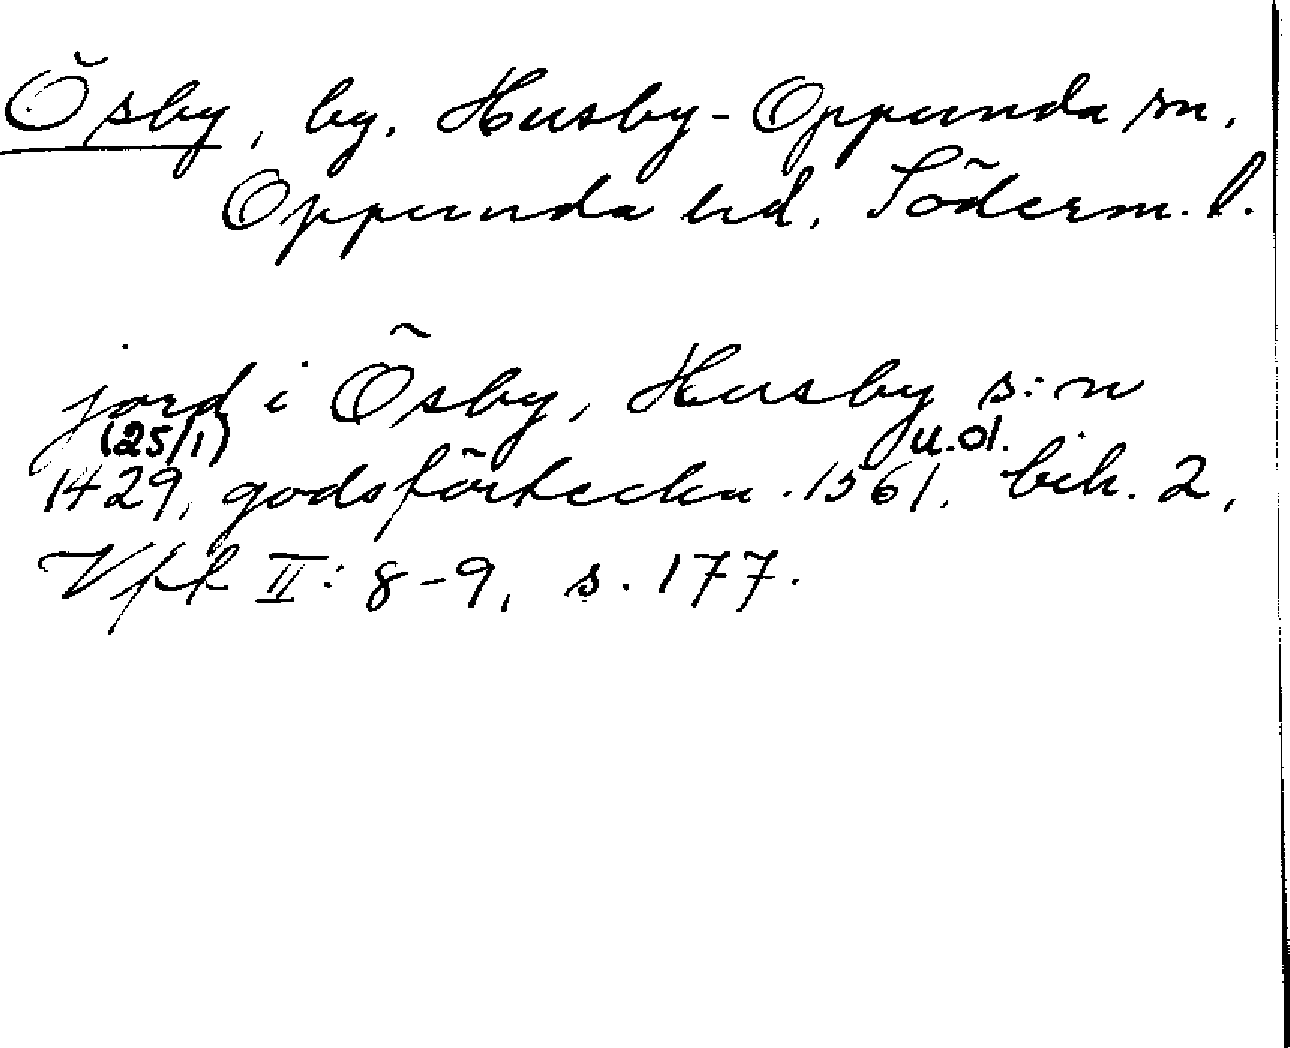 Ösby, by. Husby-Oppunda sn.
Oppunda hd, Söderm. l.
jord i Ösby, Husby s:n
(25/1) u.ol.
1429, godsförteckn. 1561, bih. 2,
Vfk II: 8-9, s. 177.